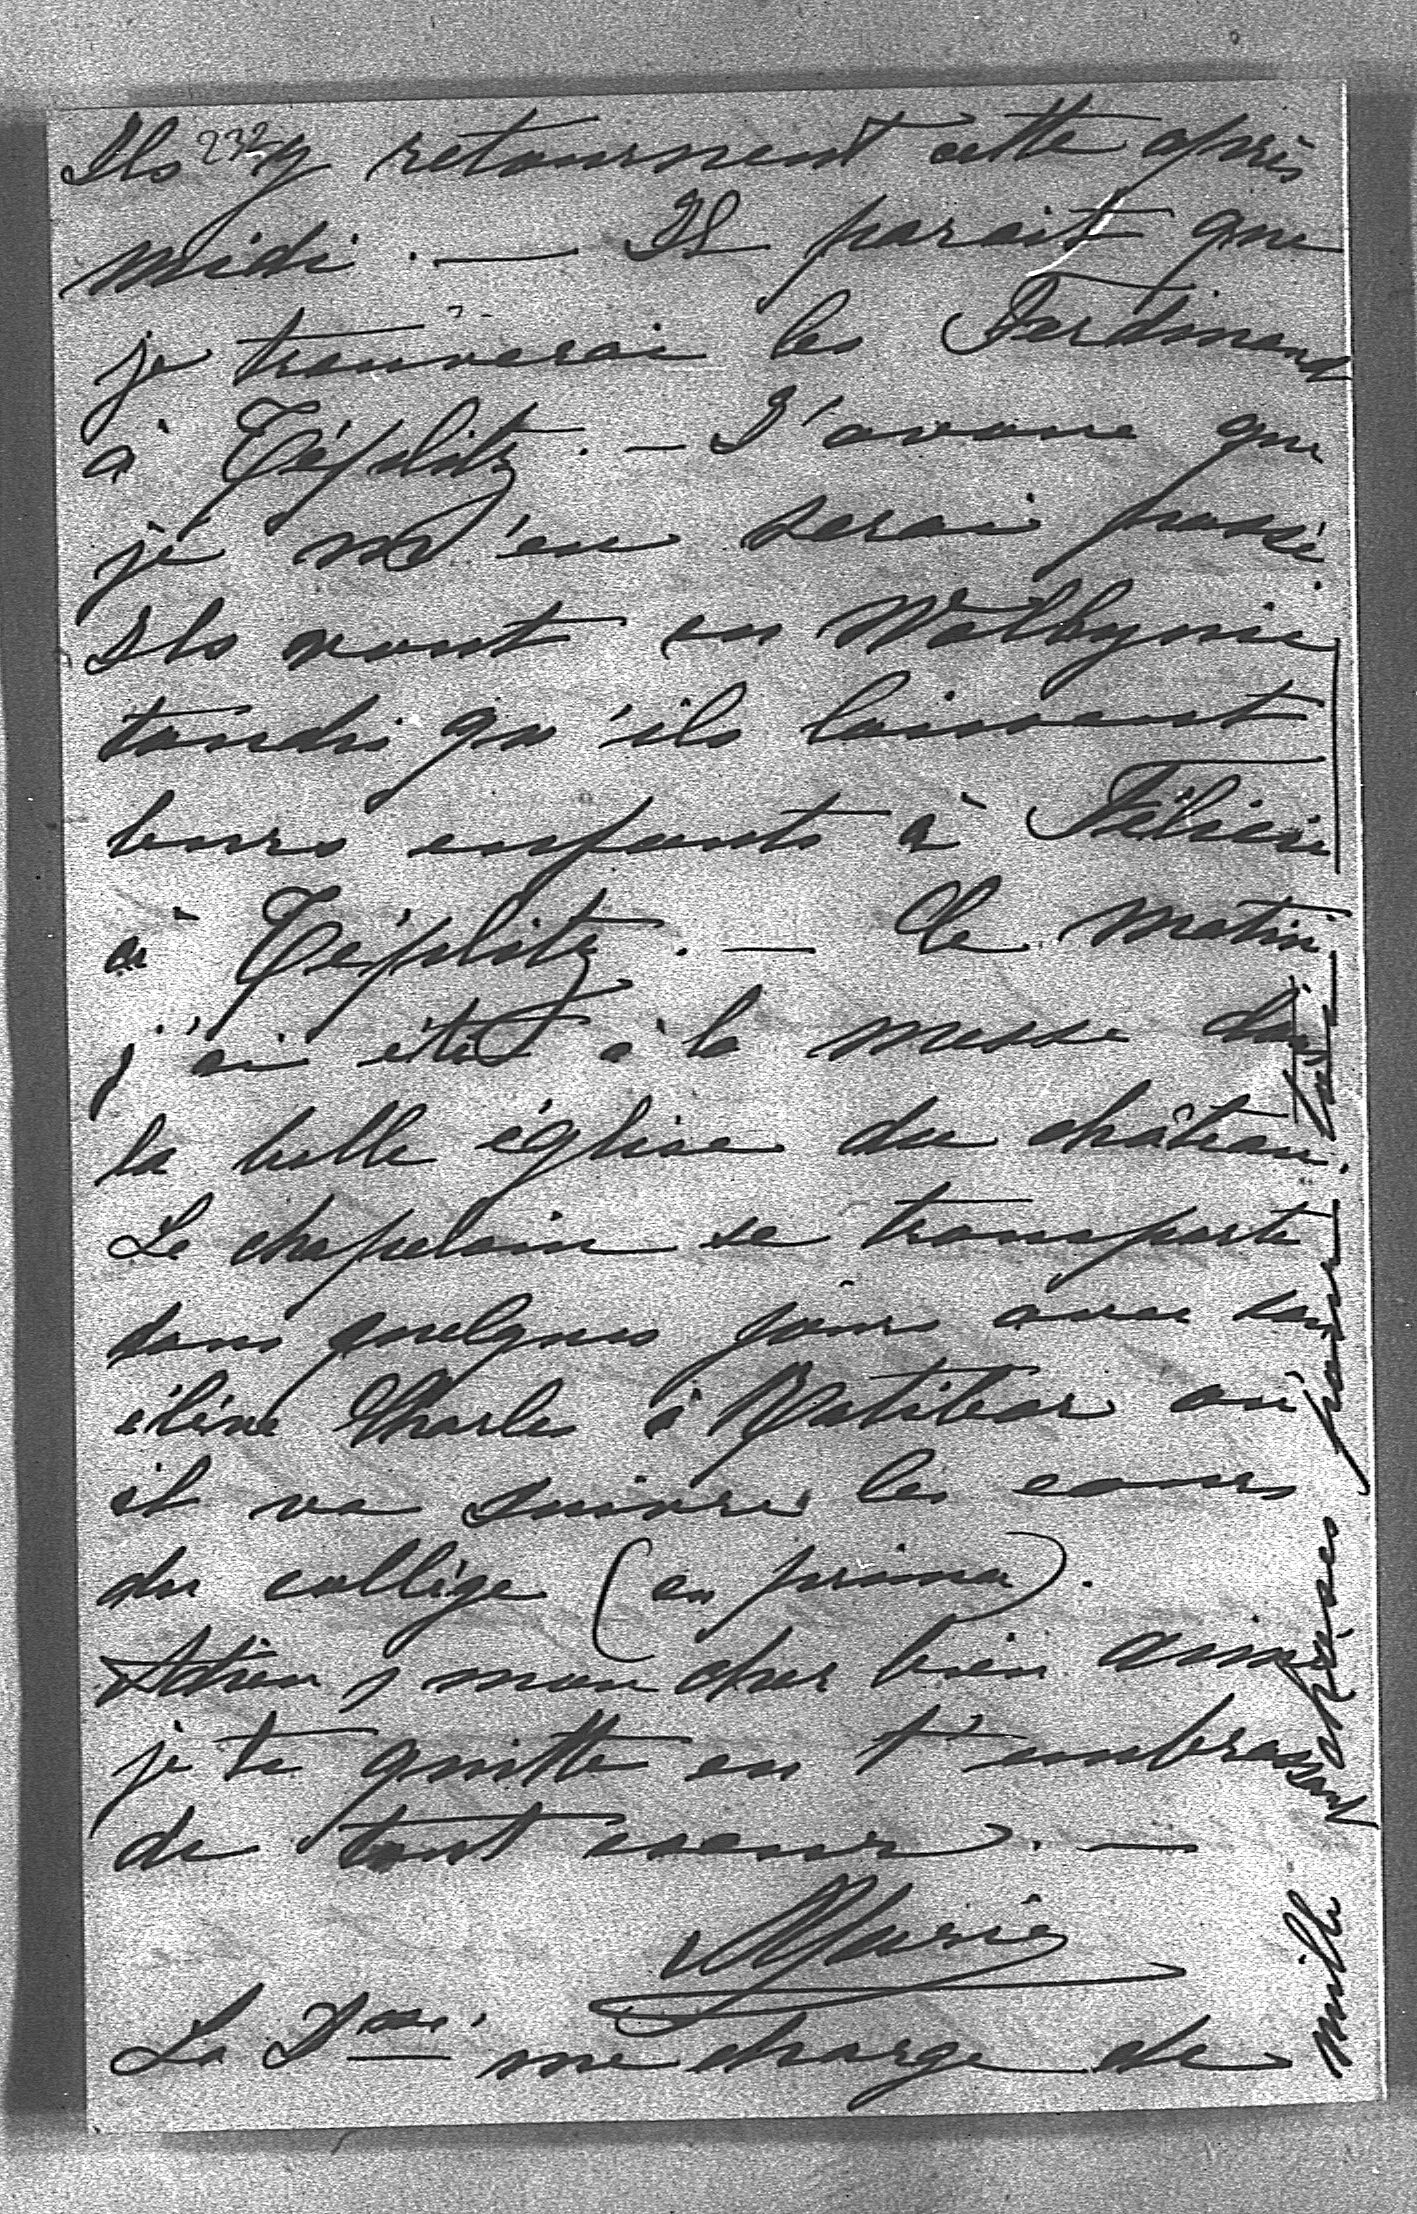 232
Ils y retournent cette après
midi. — Il parait que
je trouverai les Ferdinand
à Téplitz. — J'avoue que
je m'en serai passé.
Ils vont en Wolhynie
tandis qu'ils laissent
leurs enfants à Félicie
à Téplitz. — Ce matin
j'ai été à la messe dans
la belle église du château.
Le chapelain se transporte
dans quelques jours avec son
élève Charles à Ratibor où
il va suivre les cours
du collège (en prima).
Adieu, mon cher bien aimé
je te quitte en t'embrassant
de tout coeur. —
Marie
La Dsse. me charge de
mille choses pour toi